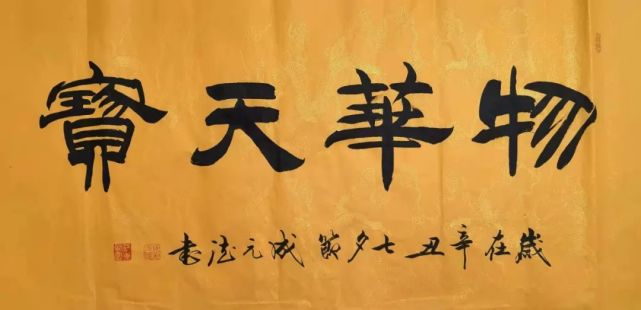 物華天寶
歲在辛丑七夕節成元法書